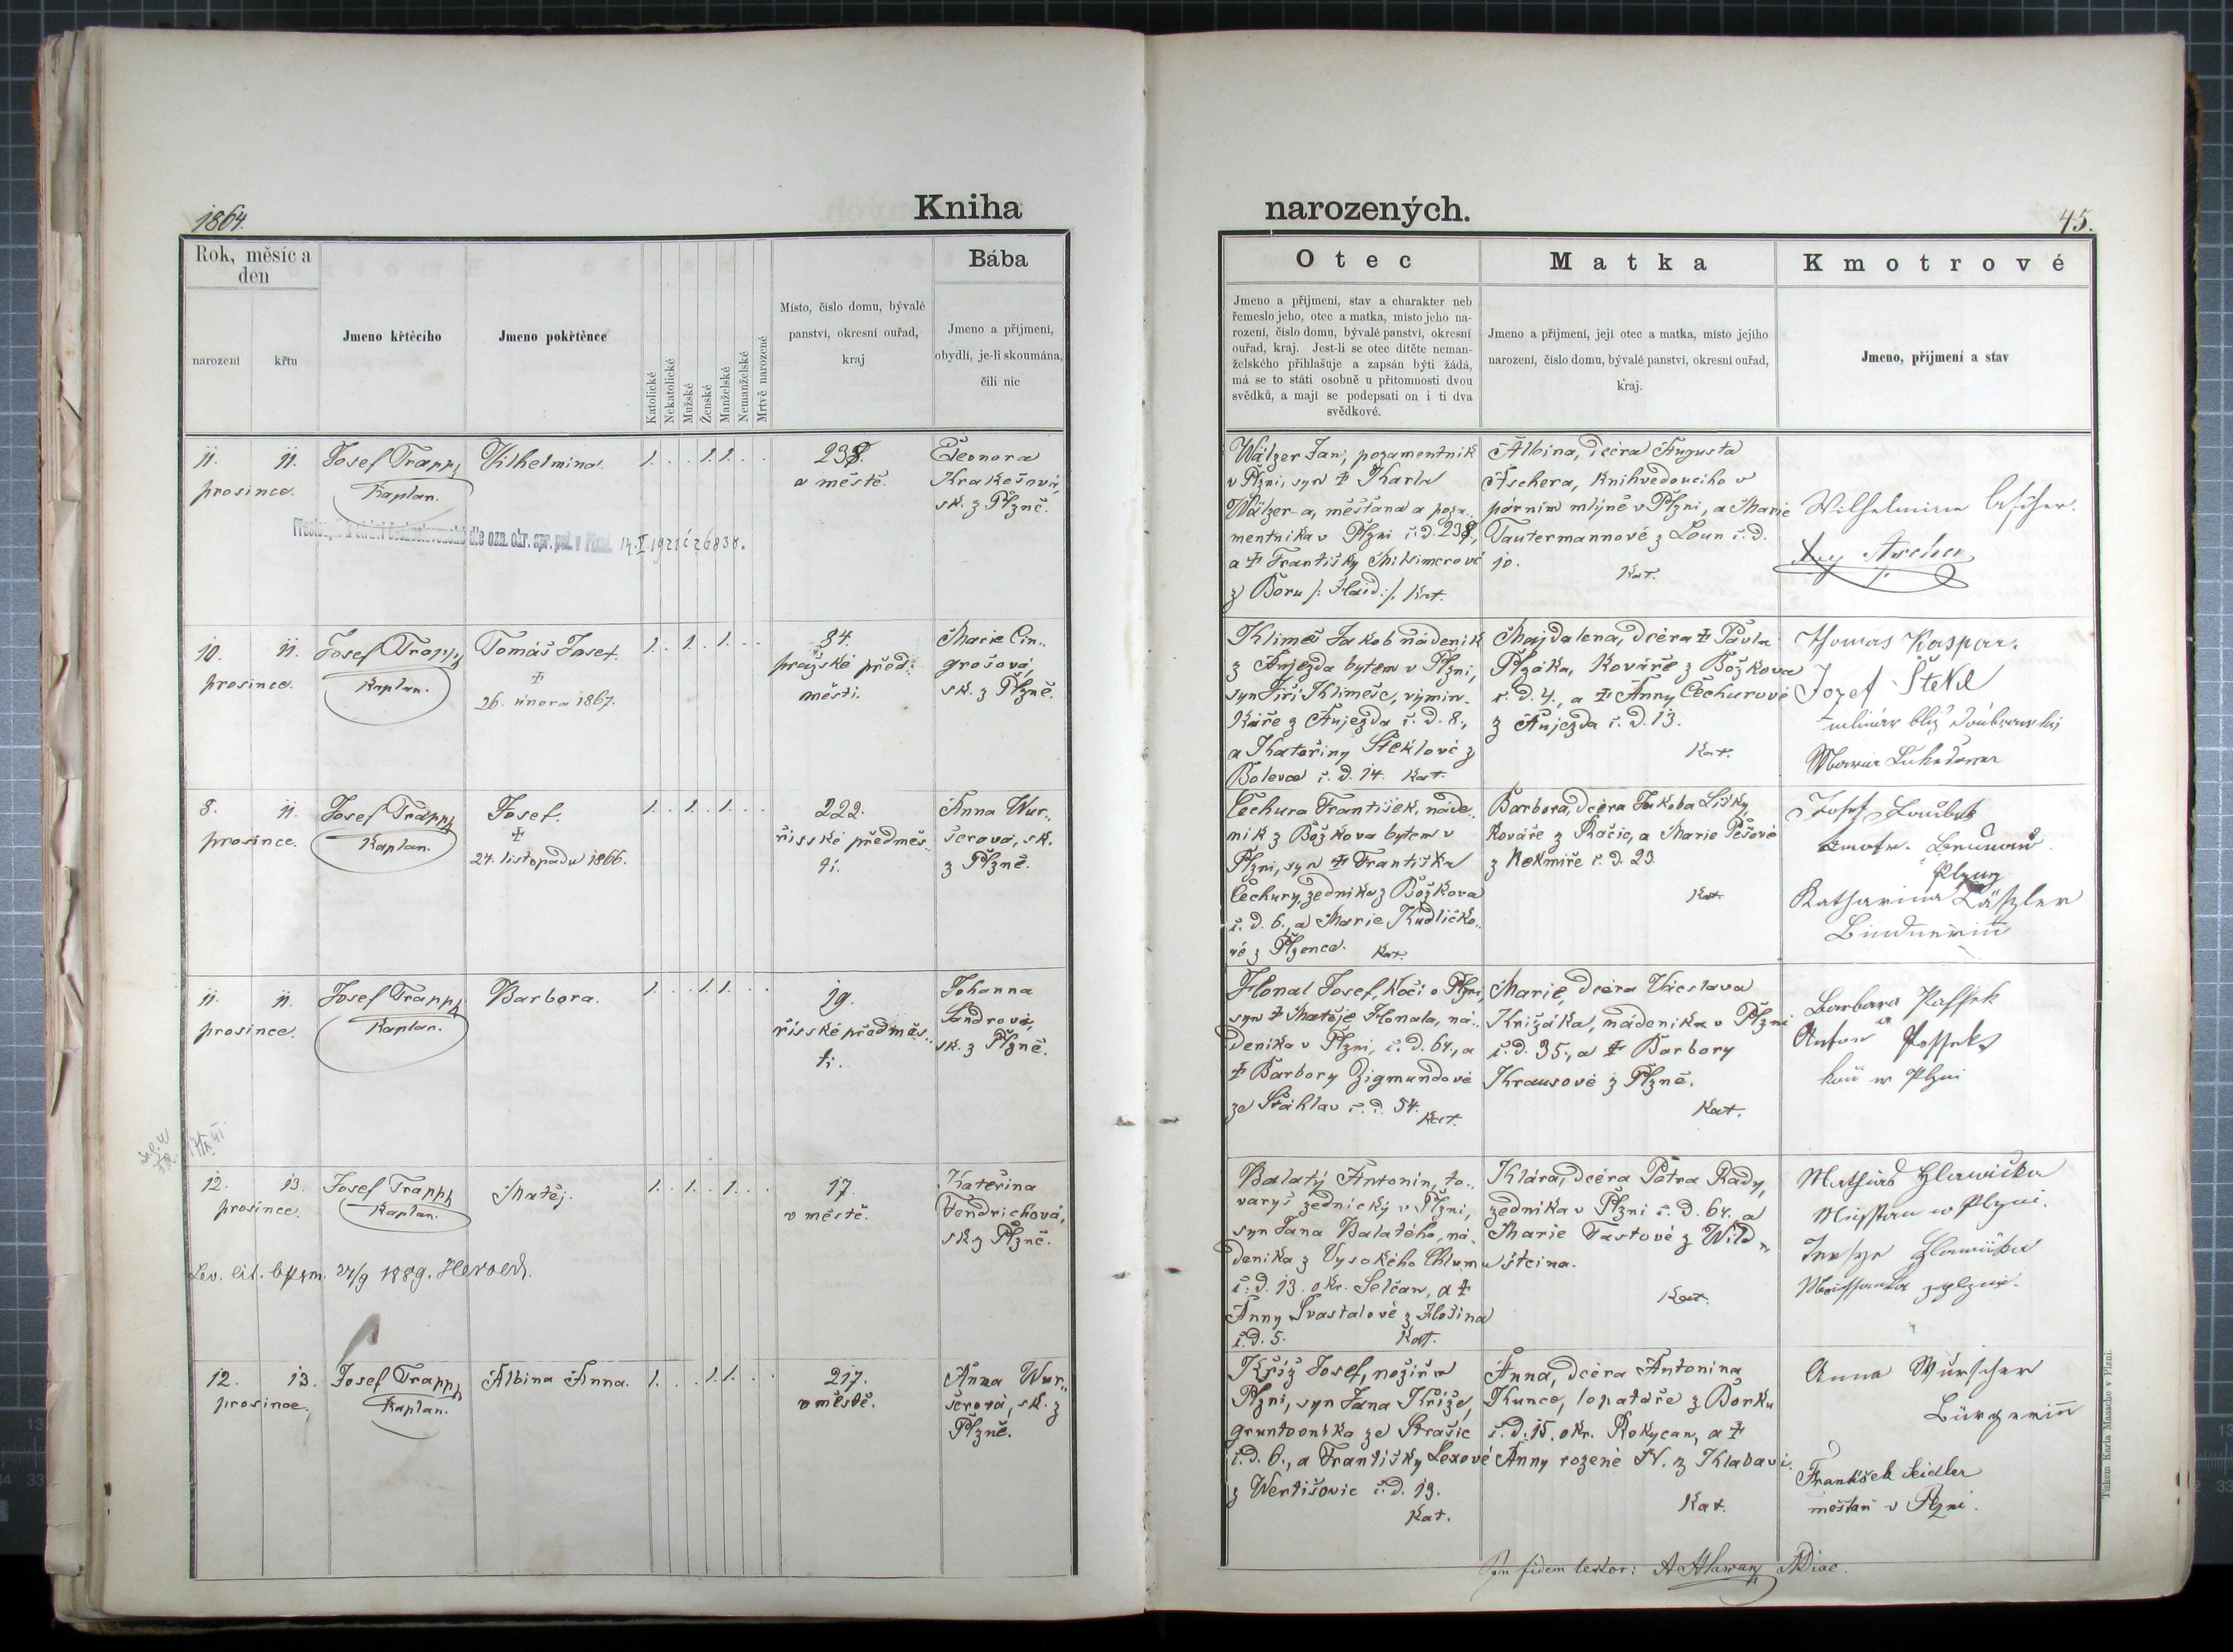 1864.
Kniha
narozených.
45.
Rok, měsíc a
den
narození
křtu
Jmeno křtěcího
Jmeno pokřtěnce
Katolické
Nekatolické
Mužské
Ženské
Manželské
Nemanželské
Mrtvě narozené
Místo, číslo domu, bývalé
panství, okresní ouřad,
kraj
Bába
Jmeno a příjmení,
obydlí, je-li skoumána,
čili nic
Otec
Jmeno a příjmení, stav a charakter neb
řemeslo jeho, otec a matka, místo jeho na-
rození, číslo domu, bývalé panství, okresní
ouřad, kraj. Jest-li se otec dítěte neman-
želského přihlašuje a zapsán býti žádá,
má se to státi osobně u přítomnosti dvou
svědků, a mají se podepsati on i ti dva
svědkové.
Matka
Jmeno a příjmení, její otec a matka, místo jejího
narození, číslo domu, bývalé panství, okresní ouřad,
kraj.
Kmotrové
Jmeno, příjmení a stav
11. 11.
prosince.
Josef Trapp
Kaplan.
Vilhelmina.
1. . . 1. 1. . .
238.
v městě.
Eleonora
Krakešová,
sk. z Plzně.
československé dle ozn. okr. spr. pol. v Plzni. 14.V.1921 č 26838.
Wälzer Jan, pozamentník
v Plzni, syn ☩ Karla
Wälzer-a, měšťana a poza..
mentníka v Plzni č.d. 238,
a ☩ Františky
z Boru /: Haid :/. Kat.
Albina, dcéra Augusta
Aschera, knihvedoucího v
párním mlýně v Plzni, a Marie
Tautermannové z Loun č. d.
10.
Kat.
Wilhelmine Ascher.
Aug Ascher
10. 11.
prosince.
Josef Trapp
Kaplan.
Tomáš Josef.
☩
26. února 1867.
1. . 1. . 1. . .
84.
pražské před..
městí.
Marie Cin..
grošová,
sk. z Plzně.
Klimeš Jakob nádeník
z Aujezda bytem v Plzni,
syn Jiří Klimeše, výmin..
káře z Aujezda č. d. 8.,
a Kateřiny Šteklové z
Bolevce č. d. 14. Kat.
Majdalena, dcéra ☩ Pavla
Plzáka, kováře z Božkova
č. d. 4., a ☩ Anny Čechurové
z Aujezda č. d. 13.
Kat.
Thomas Kaspar.
Jozef Štekl
8. 11.
prosince.
Josef Trapp
Kaplan.
Josef.
☩
24. listopadu 1866.
1. . 1. . 1. . .
222.
říšské předměs..
tí.
Anna Wur..
šerová, sk.
z Plzně.
Čechura František, náde..
ník z Božkova bytem v
Plzni, syn ☩ Františka
Čechury, zedníka z Božkova
č. d. 6., a Marie Kudličko..
vé z Plzence. Kat.
Barbora, dcéra Jakoba Lišky,
kováře z Račic, a Marie Pešové
z Nekmíře č. d. 23.
Kat.
Josef
Katharina
11. 11.
prosince.
Josef Trapp
Kaplan.
Barbora.
1. . . 1. 1. . .
19.
říšské předměs..
tí.
Johanna
Sandrová,
sk. z Plzně.
Honal Josef, kočí v Plzni,
syn ☩ Matěje Honala, ná..
deníka v Plzni, č. d. 64., a
☩ Barbory Zigmundové
ze Šťáhlav č. d. 54.
Kat.
Marie, dcéra Václava
Křižáka, nádeníka v Plzni
č. d. 35., a ☩ Barbory
Krausové z Plzně.
Kat.
Barbara
Anton
12. 13.
prosince.
Josef Trapp
Kaplan.
Matěj.
1. . 1. . 1. . .
17.
v městě.
Kateřina
Fendrichová,
sk. z Plzně.
24/9 1889. Herold.
Balatý Antonín, to..
varyš zednický v Plzni,
syn Jana Balatého, ná..
deníka z Vysokého Chlumu
č. d. 13. okr. Selčan, a ☩
Anny Švastalové z
č. d. 5. Kat.
Klára, dcéra Petra Rady,
zedníka v Plzni č. d. 64. a
Marie Tastové z Wild..
šteina.
Kat.
Mathias Hlawička
12. 13.
prosince.
Josef Trapp
Kaplan.
Albina Anna.
1. . . 1. 1. . .
217.
v městě.
Anna Wur..
šerová, sk. z
Plzně.
Kříž Josef, nožíř v
Plzni, syn Jana Kříže,
gruntovníka ze Strašic
č. d. 6., a Františky Lexové
z Wertišovic č. d. 19.
Kat.
Anna, dcéra Antonína
Kunce, lopatáře z Borku
č. d. 15. okr. Rokycan, a ☩
Anny rozené N. z Klabavi.
Kat.
Anna Würscher
Bürgerin
František Seidler
měšťan v Plzni.
A Hlawan
Tiskem Karla Maasche v Plzni.